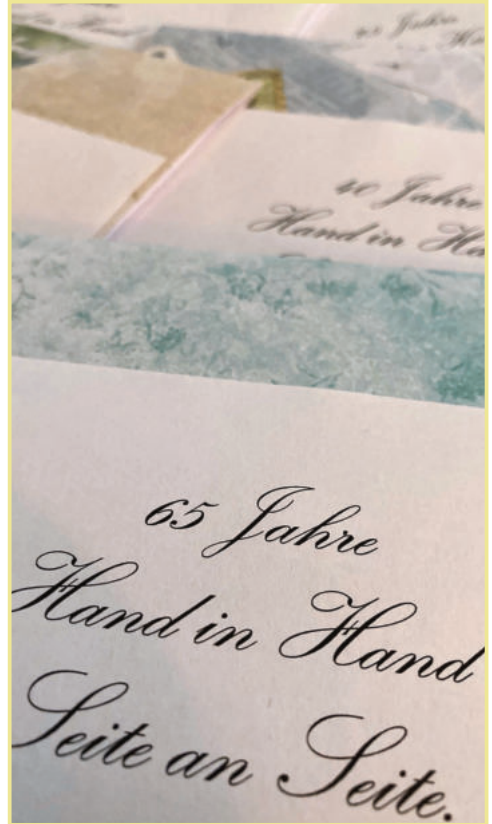 65 Jahre
Ha
40 Jahre
Hand in Ha
65 Jahre
Hand in Hand
Seite an Seite.